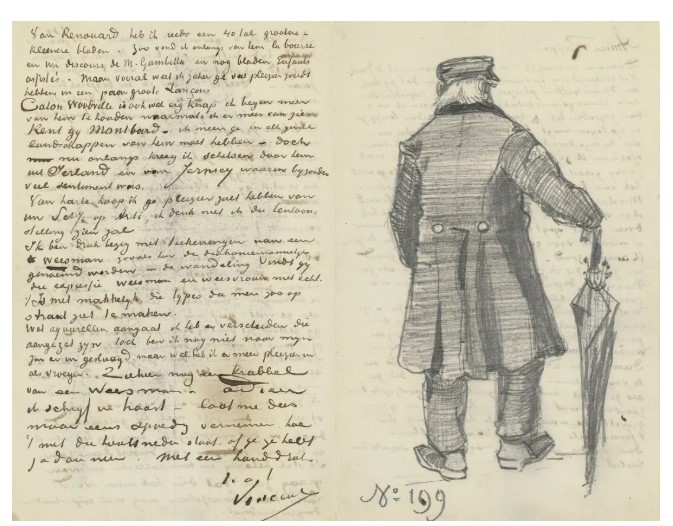 Van Renouard heb ik reeds een 40 tal grootere &
kleinere bladen. Zoo vond ik onlangs van hem la bourse
en un discours de M. Gambetta en nog bladen Enfants
assistés. Maar vooral weet ik zeker ge veel pleizier zoudt
hebben in een paar groote Lançons
Caton Woodville is ook wel erg knap ik begin meer
van hem te houden naarmate ik er meer van zien
Kent gij Montbard – ik meen ge in elk geval
landschappen van hem moet hebben – doch
nu onlangs kreeg ik schetsen door hem
uit Ierland en van Jersey waarin bijzonder
veel sentiment was.
Van harte hoop ik ge pleizier zult hebben van
uw op Arti, ik denk niet ik die tentoon.
stelling zien zal
Ik ben druk bezig met teekeningen van een
weesman zooals hier de diakoniemannetjes
genoemd worden – de wandeling Vindt gij
die expressie Weesman en weesvrouw niet echt.
't Is niet makkelijk die types die men zoo op
straat ziet te maken.
Wat aquarellen aangaat ik heb er verscheiden die
aangezet zijn. Toch ben ik nog niet naar mijn
zin er in geslaagd, maar wel heb ik er meer pleizier in
als vroeger. Ziehier nog een krabbel
van een Weesman. adieu
ik schrijf in haast – laat me dus
maar eens spoedig vernemen hoe
't met die houtsneden staat. of ge ze hebt
ja dan neen. Met een handdruk.
t. à t.
Vincent
No 199